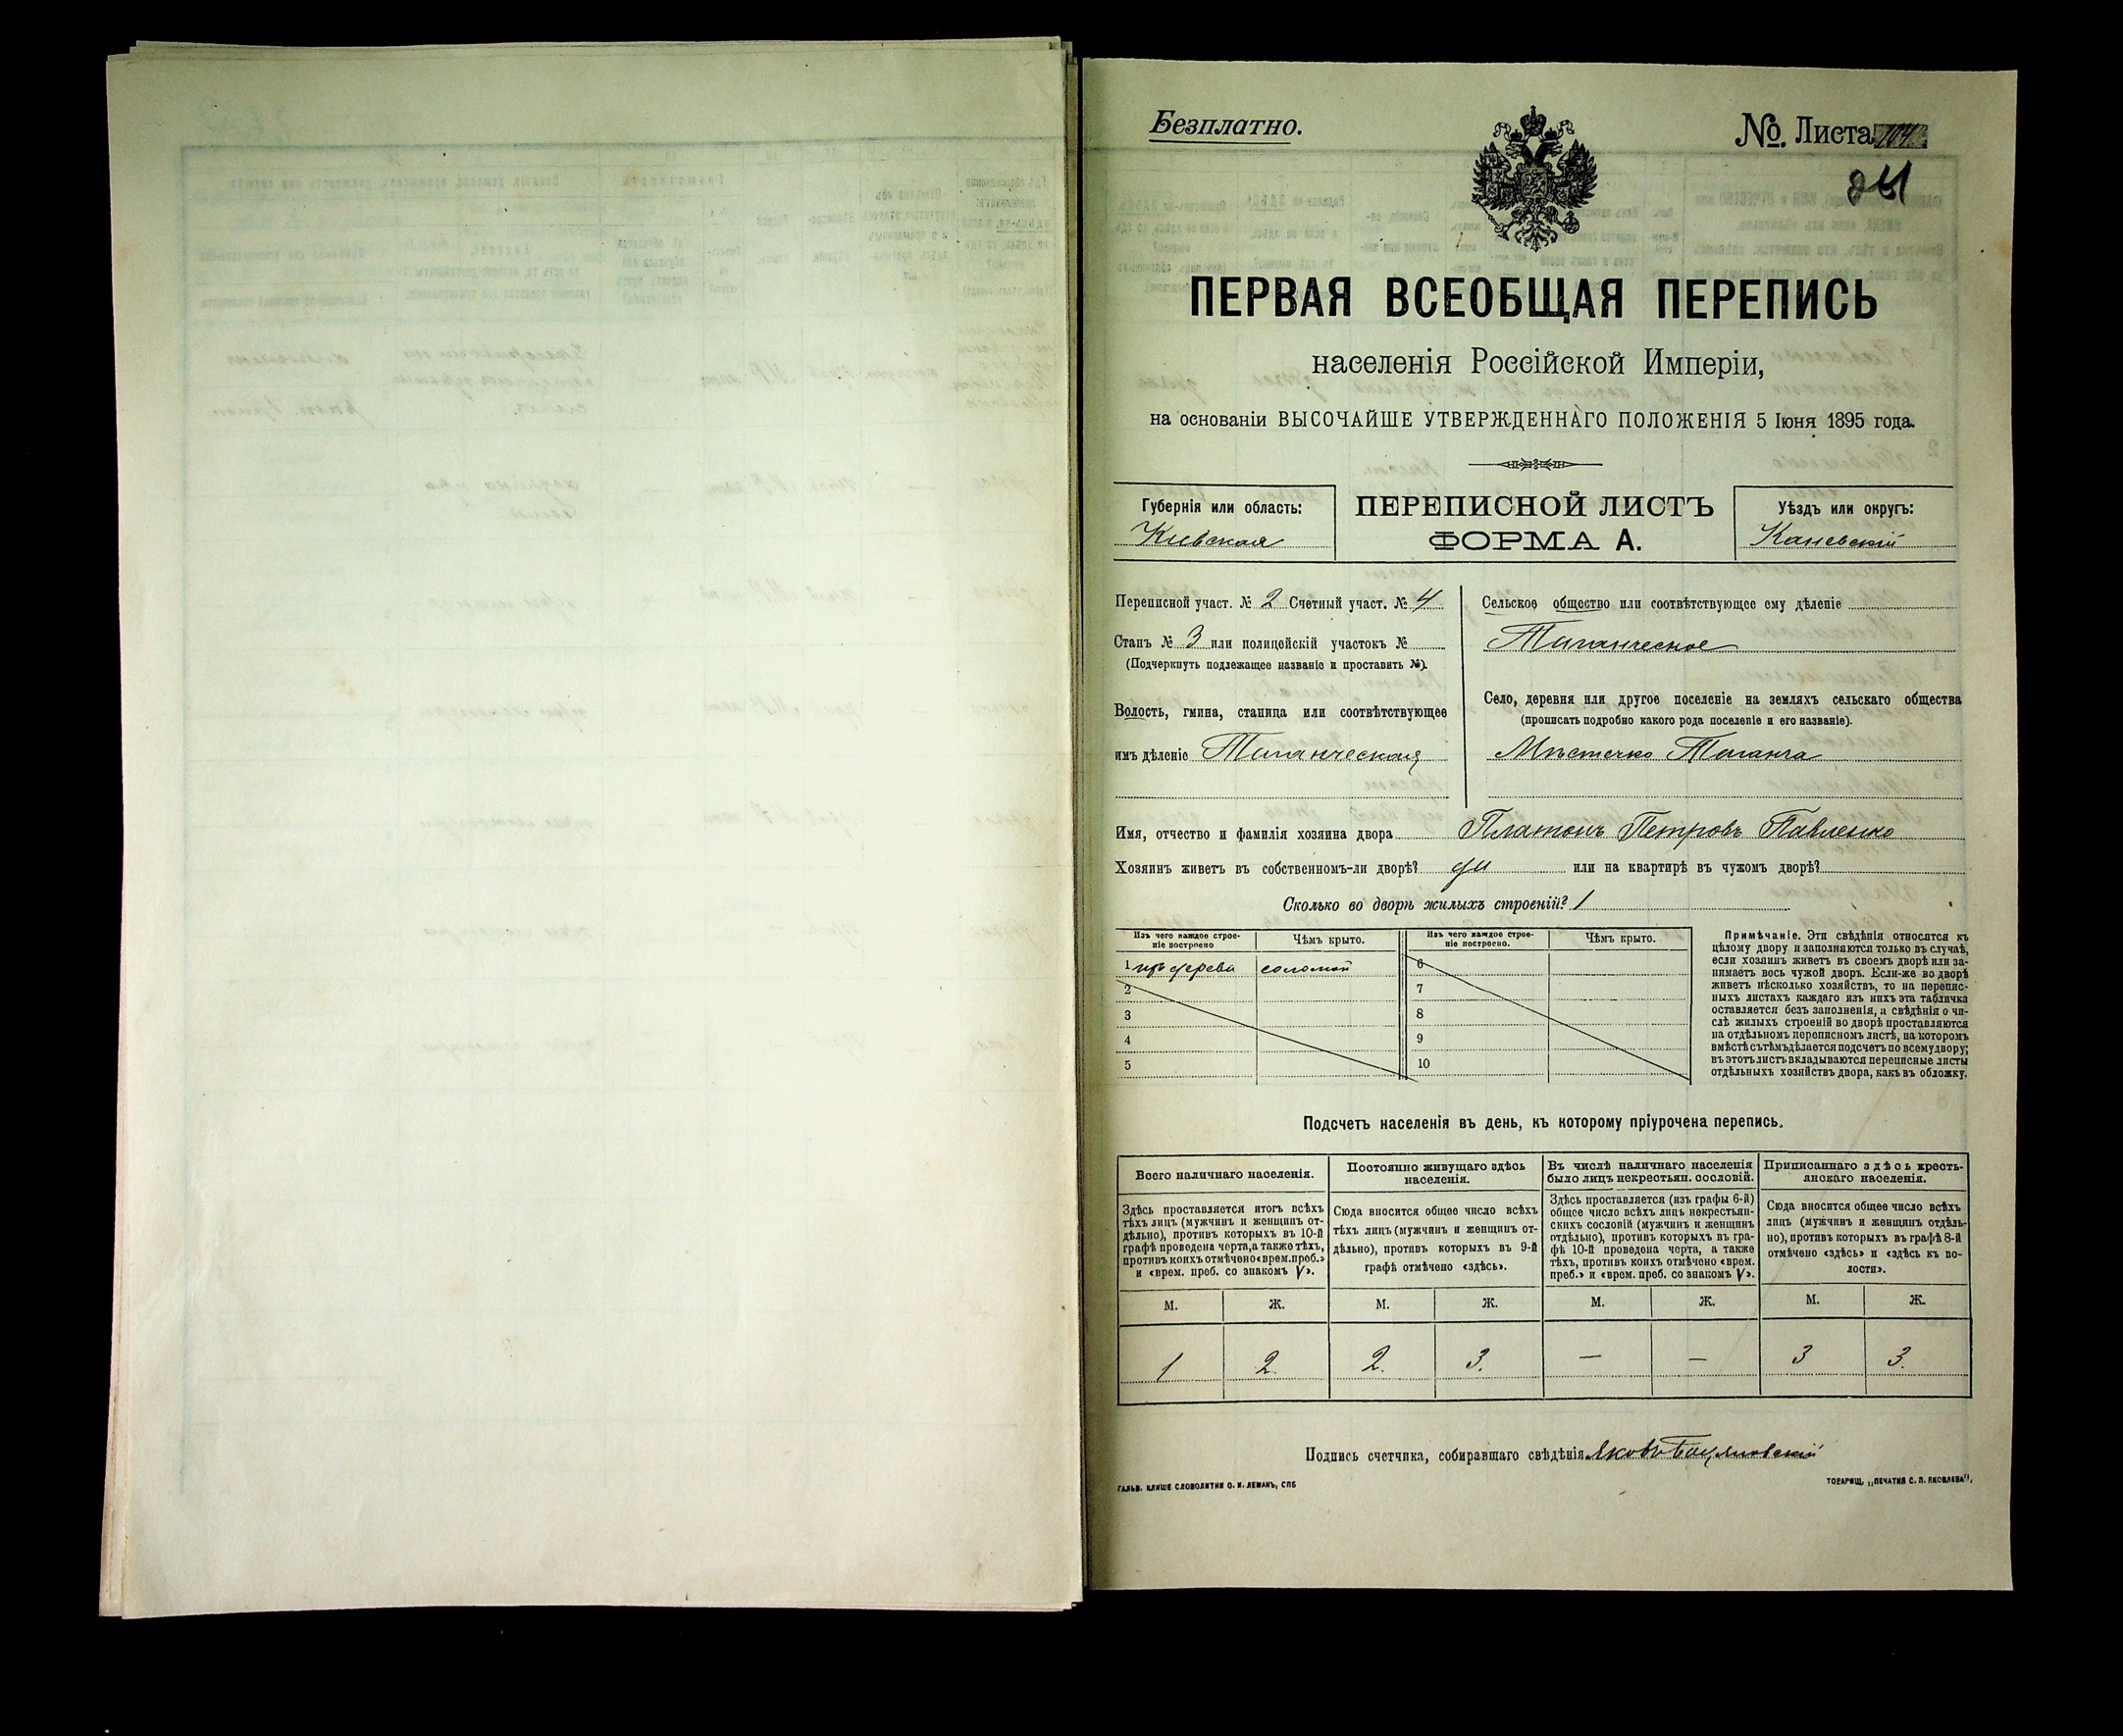 Безплатно.
№. Листа 104
ПЕРВАЯ ВСЕОБЩАЯ ПЕРЕПИСЬ
населенія Россійской Имперіи,
на основаніи ВЫСОЧАЙШЕ УТВЕРЖДЕННАГО ПОЛОЖЕНІЯ 5 Іюня 1895 года.
Губернія или область:
Кіевская
ПЕРЕПИСНОЙ ЛИСТЪ
ФОРМА А.
Уѣздъ или округъ:
Каневскій
Переписной участ. № 2 Счетный участ. № 4
Станъ № 3 или полицейскій участокъ №
(Подчеркнуть подлежащее названіе и проставить №).
Волость, гмина, станица или соотвѣтствующее
имъ дѣленіе Таганческая
Сельское общество или соотвѣтствующее ему дѣленіе
Таганческое
Село, деревня или другое поселеніе на земляхъ сельскаго общества
(прописать подробно какого рода поселеніе и его названіе).
Мѣстечко Таганча
Имя, отчество и фамилія хозяина двора Платонъ Петровъ Павленко
Хозяинъ живетъ въ собственномъ-ли дворѣ? да или на квартирѣ въ чужомъ дворѣ?
Сколько во дворѣ жилыхъ строеній? 1
Изъ чего каждое строе-
ніе построено
Чѣмъ крыто.
Изъ чего каждое строе-
ніе построено.
Чѣмъ крыто.
1 изъ дерева соломой 6
2 7
3 8
4 9
5 10
Примѣчаніе. Эти свѣдѣнія относятся къ
цѣлому двору и заполняются только въ случаѣ,
если хозяинъ живетъ въ своемъ дворѣ или за-
нимаетъ весь чужой дворъ. Если-же во дворѣ
живетъ нѣсколько хозяйствъ, то на перепис-
ныхъ листахъ каждаго изъ нихъ эта табличка
оставляется безъ заполненія, а свѣдѣнія о чи-
слѣ жилыхъ строеній во дворѣ проставляются
на отдѣльномъ переписномъ листѣ, на которомъ
вмѣстѣ съ тѣмъ дѣлается подсчетъ по всему двору;
въ этотъ листъ вкладываются переписные листы
отдѣльныхъ хозяйствъ двора, какъ въ обложку.
Подсчетъ населенія въ день, къ которому пріурочена перепись.
Всего наличнаго населенія.
Здѣсь проставляется итогъ всѣхъ
тѣхъ лицъ (мужчинъ и женщинъ от-
дѣльно), противъ которыхъ въ 10-й
графѣ проведена черта, а также тѣхъ,
противъ коихъ отмѣчено «врем. преб.»
и «врем. преб. со знакомъ V».
Постоянно живущаго здѣсь
населенія.
Сюда вносится общее число всѣхъ
тѣхъ лицъ (мужчинъ и женщинъ от-
дѣльно), противъ которыхъ въ 9-й
графѣ отмѣчено «здѣсь».
Въ числѣ наличнаго населенія
было лицъ некрестьян. сословій.
Здѣсь проставляется (изъ графы 6-й)
общее число всѣхъ лицъ некрестьян-
скихъ сословій (мужчинъ и женщинъ
отдѣльно), противъ которыхъ въ гра-
фѣ 10-й проведена черта, а также
тѣхъ, противъ коихъ отмѣчено «врем.
преб.» и «врем. преб. со знакомъ V».
Приписаннаго здѣсь кресть-
янскаго населенія.
Сюда вносится общее число всѣхъ
лицъ (мужчинъ и женщинъ отдѣль-
но), противъ которыхъ въ графѣ 8-й
отмѣчено «здѣсь» и «здѣсь къ во-
лости».
М. Ж. М. Ж. М. Ж. М. Ж.
1 2. 2. 3. — — 3 3.
Подпись счетчика, собиравшаго свѣдѣнія Яковъ
ГАЛЬВ. КЛИШЕ СЛОВОЛИТНИ О. И. ЛЕМАНЪ, СПБ
ТОВАРИЩ. „ПЕЧАТНЯ С. П. ЯКОВЛЕВА“.